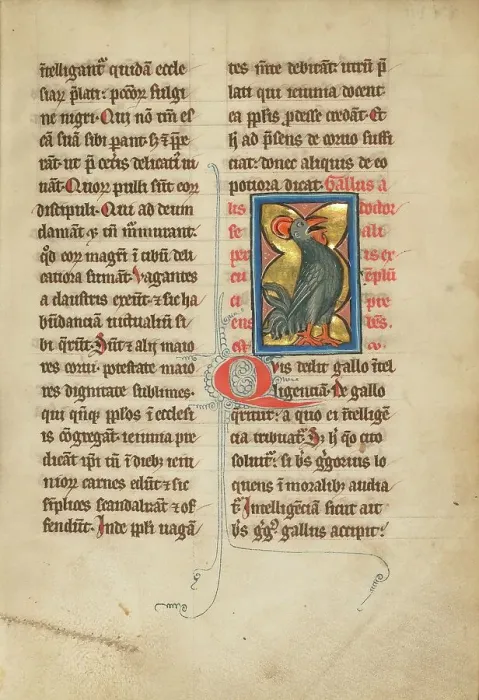 ītelligant᷑ quidā eccle
siaꝝ p̄lati: pcc̄oꝝ fuligi
ne nigri. Qui nō tm̄ es
cā suā sibi ꝑant. sꝫ ⁊
rāt ut p̄ ceris delicati᷑ vi
uāt. Quoꝝ pulli sūt eoꝝ
discipuli. Qui ad deum
clamāt ⁊ tn̄ murmurant:
qd̓ eoꝝ magr̄i ī cibū deli
catiora sumāt. Vagantes
a claustris exeūt. ⁊ sic ha
būdanciā uictualiū si
bi q̄rūt. Sūt ⁊ alij maio
res corui. potestate maio
res dignitate sublimes.
qui qn̄qꝫ pplos ī ecclesi
is ꝯgregāt. ieiunia pre
dicāt. ip̄i tn̄ ī diebꝫ ieiu
nioꝝ carnes edūt. ⁊ sic
sīplices scandalizāt ⁊ of
fendūt. Inde ppli uagā
tes utrū p̄
lati qui ieiunia docent
ꝓdesse credāt. Et
h̄ ad p̄sens de coruo suffi
ciat: donec aliquis de eo
potiora dicat. Gallus a
lis doctor
se ali
ex
cu
ci pre
ens tes.
est co.
Qvis dedit gallo ītel
ligenciā. De gallo
q̄ritur: a quo ei ītelligē
cia tribuat᷑. S; h̄ q̄o cito
soluit᷑: si b̄s g̓gorius lo
quens ī moralibꝫ audia
t᷑. Intelligēciā sicut ait
b̄s g̓g᷒. gallus accipit: